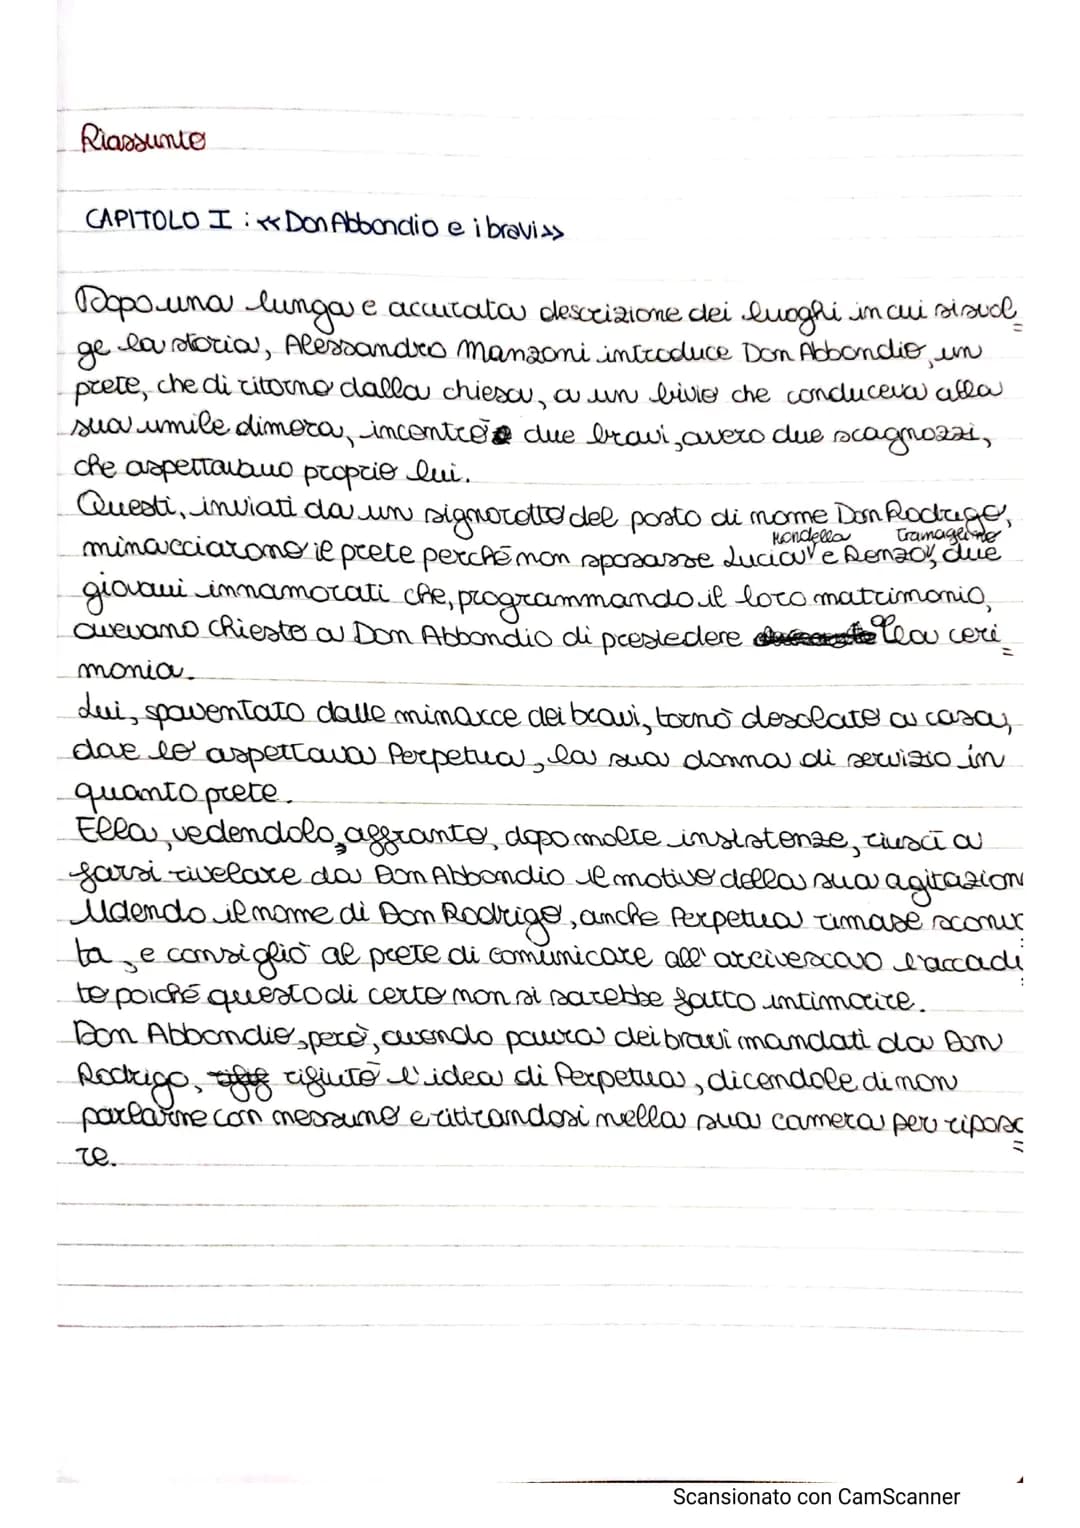 Riassunto
CAPITOLO I : «Don Abbondio e i bravi»
Dopo una lunga e accurata descrizione dei luoghi in cui si svol=
ge la storia, Alessandro Manzoni introduce Don Abbondio, un
prete, che di ritorno dalla chiesa, a un bivio che conduceva alla
sua umile dimora, incontrò due bravi, avero due scagnozzi,
che aspettavano proprio lui.
Questi, inviati da un signorotto del posto di nome Don Rodrigo,
Mondella Tramaglino
minacciarono il prete perché non sposasse Lucia e Renzo, due
giovani innamorati che, programmando il loro matrimonio,
avevano chiesto a Don Abbondio di presiedere la ceri=
monia.
Lui, spaventato dalle minacce dei bravi, tornò desolato a casa,
dove lo aspettava Perpetua, la sua donna di servizio in
quanto prete.
Ella, vedendolo affranto, dopo molte insistenze, riuscì a
farsi rivelare da Don Abbondio il motivo della sua agitazion
Udendo il nome di Don Rodrigo, anche Perpetua rimase sconvol
ta, e consigliò al prete di comunicare all'arcivescovo l'accadu
to poiché questo di certo non si sarebbe fatto intimorire.
Don Abbondio, però, avendo paura dei bravi mandati da Don
Rodrigo, rifiutò l'idea di Perpetua, dicendole di non
parlarne con nessuno e ritirandosi nella sua camera per riposa=
re.
Scansionato con CamScanner